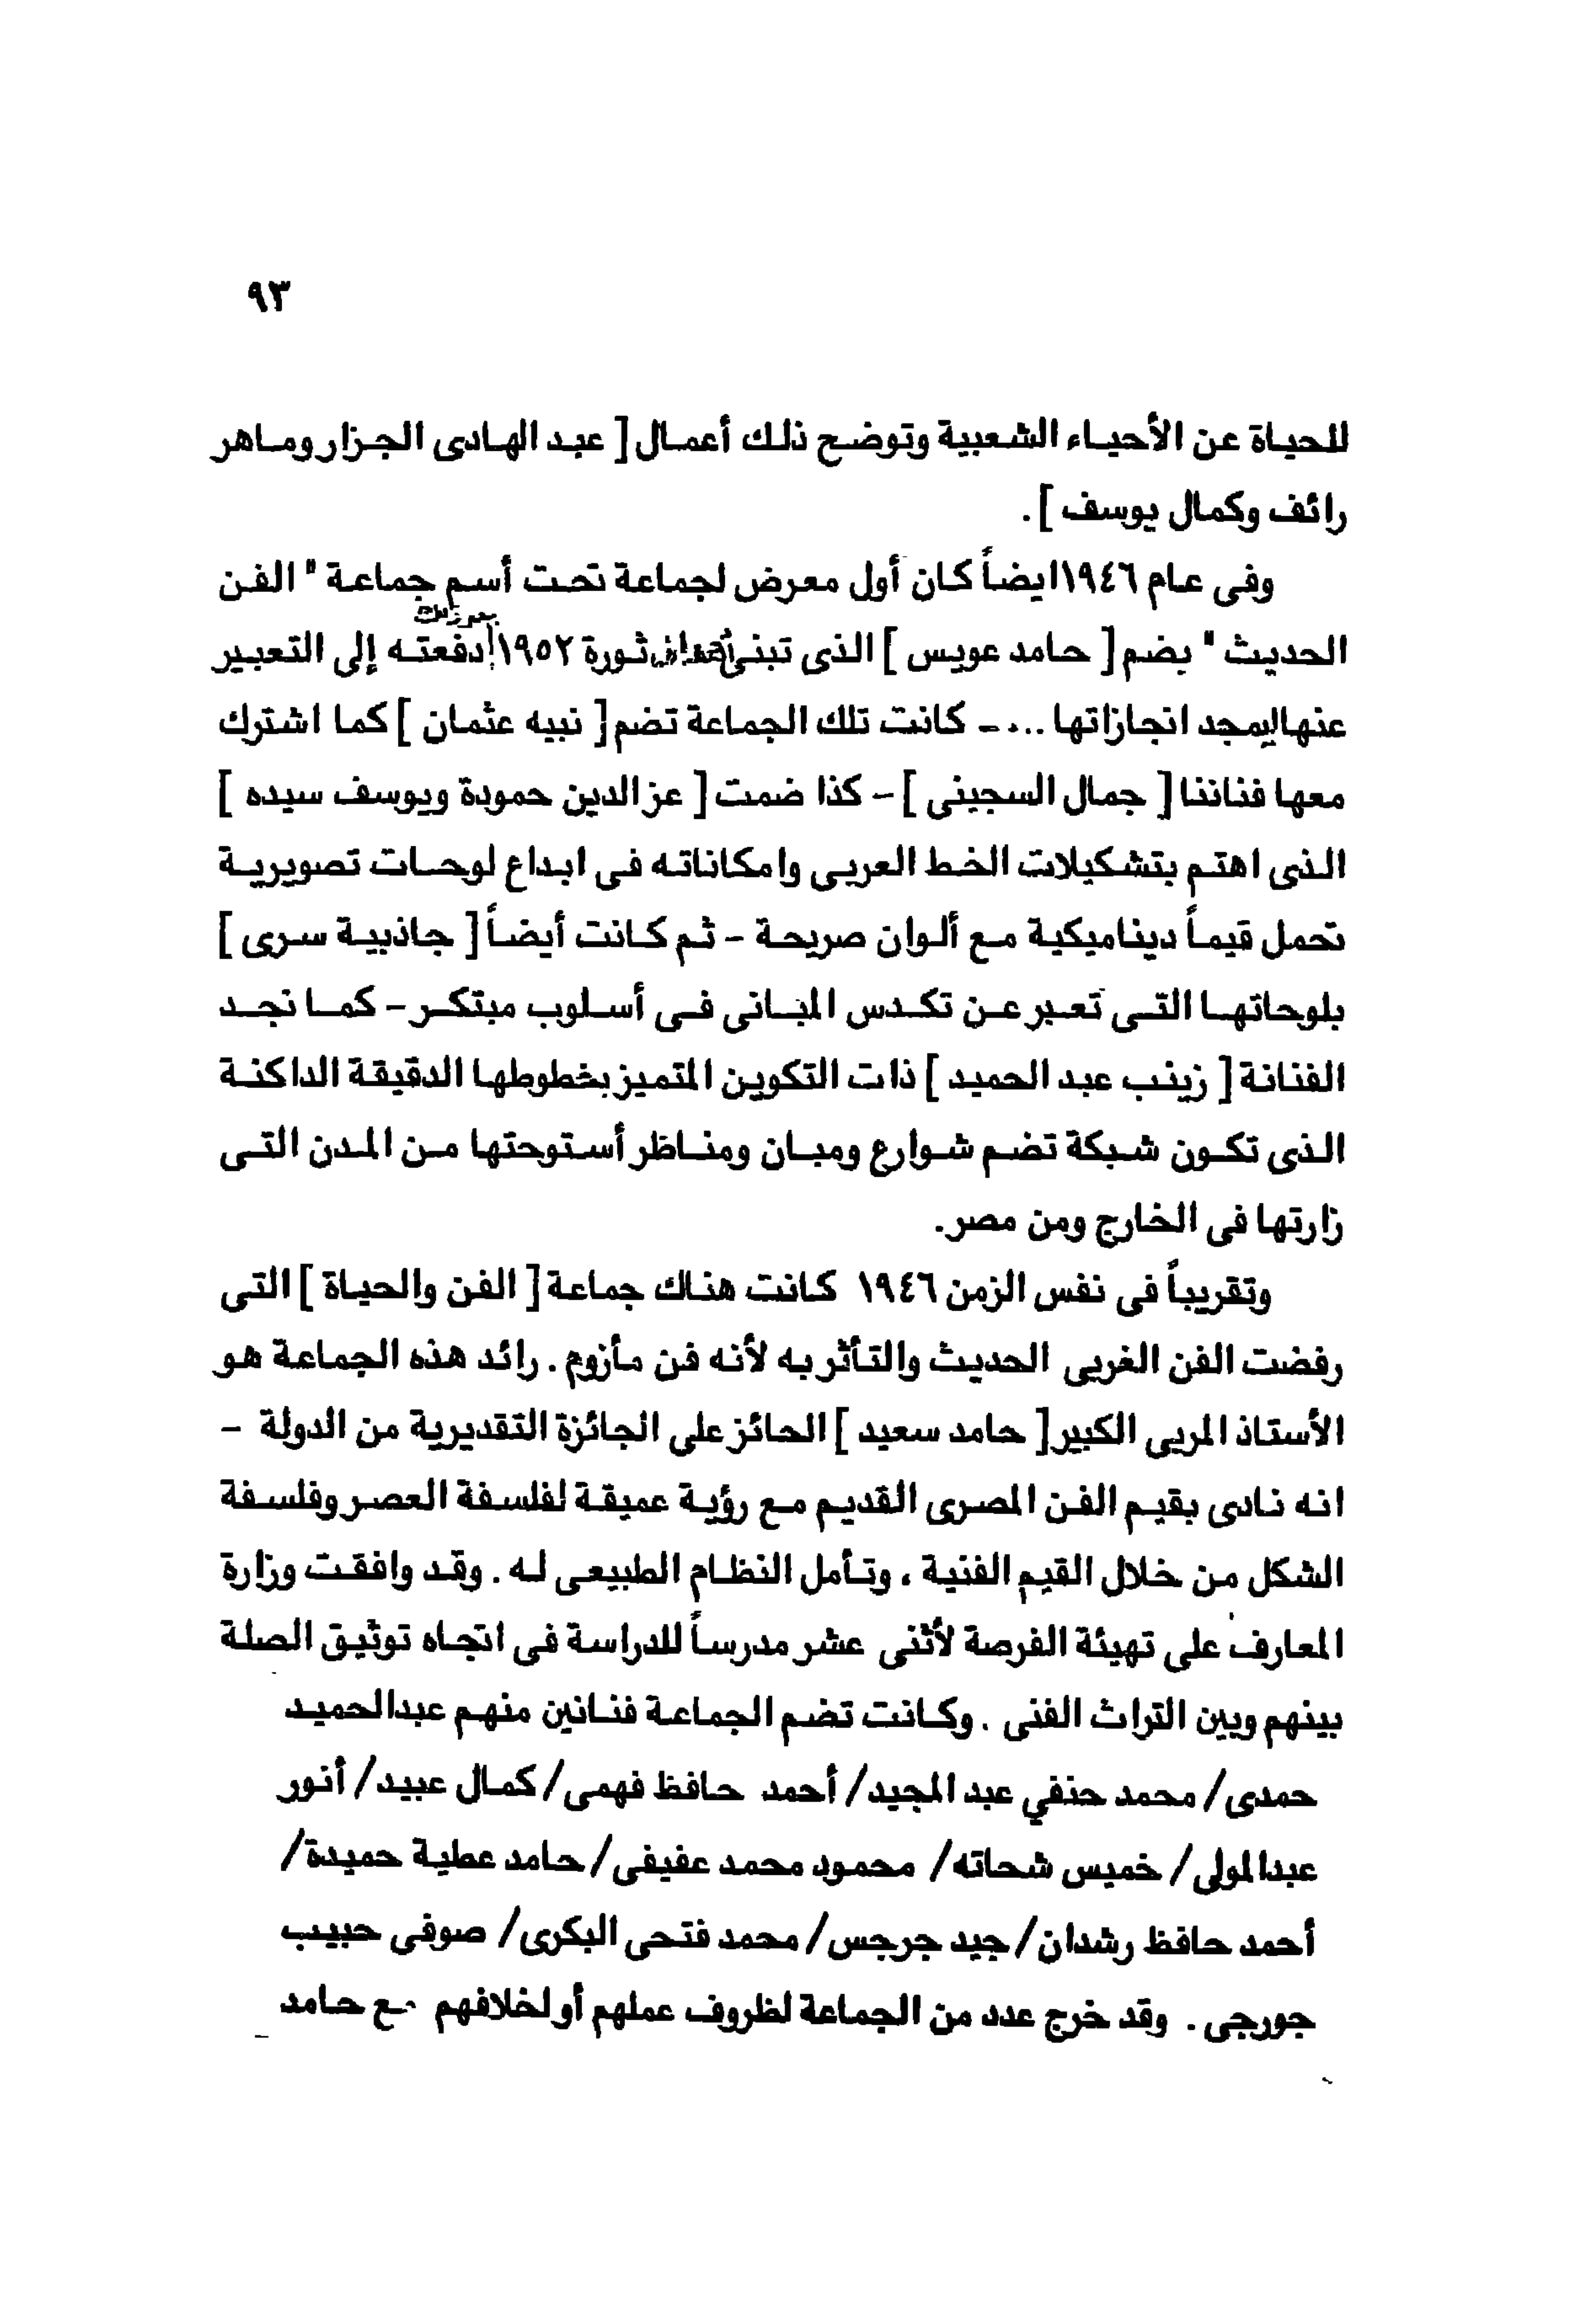 ٩٣
للحياة عن الأحياء الشعبية وتوضح ذلك أعمال [ عبد الهادى الجزار وماهر
رائف وكمال يوسف ] .
وفى عام ١٩٤٦ ايضاً كان أول معرض لجماعة تحت أسم جماعة " الفن
الحديث " يضم [ حامد عويس ] الذى تبنى ثورة ١٩٥٢ دفعته إلى التعبير
عنها ليمجد انجازاتها ...- كانت تلك الجماعة تضم [ نبيه عثمان ] كما اشترك
معها فناننا [ جمال السجينى ] - كذا ضمت [ عز الدين حمودة ويوسف سيده ]
الذى اهتم بتشكيلات الخط العربى وامكاناته فى ابداع لوحات تصويرية
تحمل قيماً ديناميكية مع ألوان صريحة - ثم كانت أيضاً [ جاذبية سرى ]
بلوحاتها التى تعبر عن تكدس المبانى فى أسلوب مبتكر - كما نجد
الفنانة [ زينب عبد الحميد ] ذات التكوين المتميز بخطوطها الدقيقة الداكنة
الذى تكون شبكة تضم شوارع ومبان ومناظر أستوحتها من المدن التى
زارتها فى الخارج ومن مصر.
وتقريباً فى نفس الزمن ١٩٤٦ كانت هناك جماعة [ الفن والحياة ] التى
رفضت الفن الغربى الحديث والتأثر به لأنه فن مأزوم . رائد هذه الجماعة هو
الأستاذ المربى الكبير [ حامد سعيد ] الحائز على الجائزة التقديرية من الدولة -
انه نادى بقيم الفن المصرى القديم مع رؤية عميقة لفلسفة العصر وفلسفة
الشكل من خلال القيم الفنية ، وتأمل النظام الطبيعى له . وقد وافقت وزارة
المعارف على تهيئة الفرصة لأثنى عشر مدرساً للدراسة فى اتجاه توثيق الصلة
بينهم وبين التراث الفنى . وكانت تضم الجماعة فنانين منهم عبدالحميد
حمدى/ محمد حنفي عبد المجيد/ أحمد حافظ فهمى/ كمال عبيد/ أنور
عبدالمولى/ خميس شحاته/ محمود محمد عفيفى/ حامد عطية حميدة/
أحمد حافظ رشدان/ جيد جرجس/ محمد فتحى البكرى/ صوفى حبيب
جورجى . وقد خرج عدد من الجماعة لظروف عملهم أو لخلافهم مع حامد